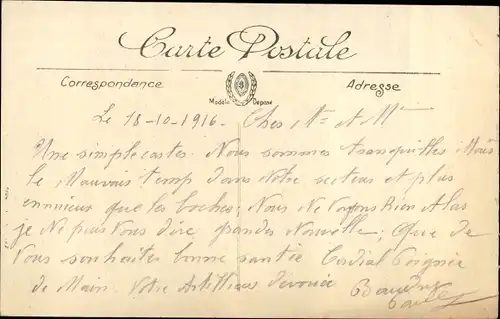 Carte Postale
Correspondance
Adresse
Modèle Déposé
Le 18-10-1916. Cher Mr et Me
Une simple cartes. Nous sommes tranquilles, Mais
le Mauvais temp dans Notre secteur et plus
ennuieux que les boches; Nous Ne Voyons Rien Alors
je Ne puis Vous dire grandes Nouvelle; Que de
Vous souhaiter bonne santée Cordial Poignée
de Main. Votre Artilleur dévoué